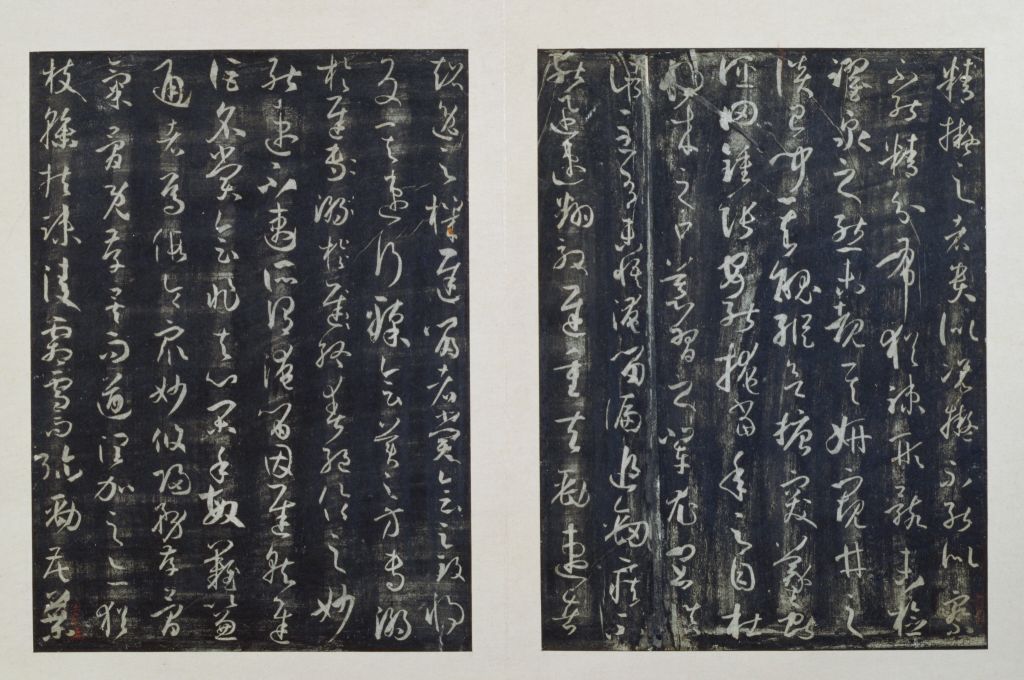 精擬之者貴似況擬不能似察
不能精分布猶疏形骸未檢
躍泉之態未覩其妍窺井之
談已聞其醜縱欲搪突羲獻
誣罔鍾張安能掩當年之目杜
將來之口慕習之輩尤宜慎
諸至有未悟淹留偏追勁疾不
能迅速翻效遲重夫勁速者
超逸之機遲留者賞會之致將
反其速行臻會美之方專溺
於遲專溺於遲終爽絕倫之妙
能速不速所謂淹留因遲就遲
詎名賞會非夫心閑手敏難以兼
通者焉假令眾妙攸歸務存骨
氣骨既存矣而遒潤加之亦猶
枝幹扶疏凌霜雪而彌勁花葉